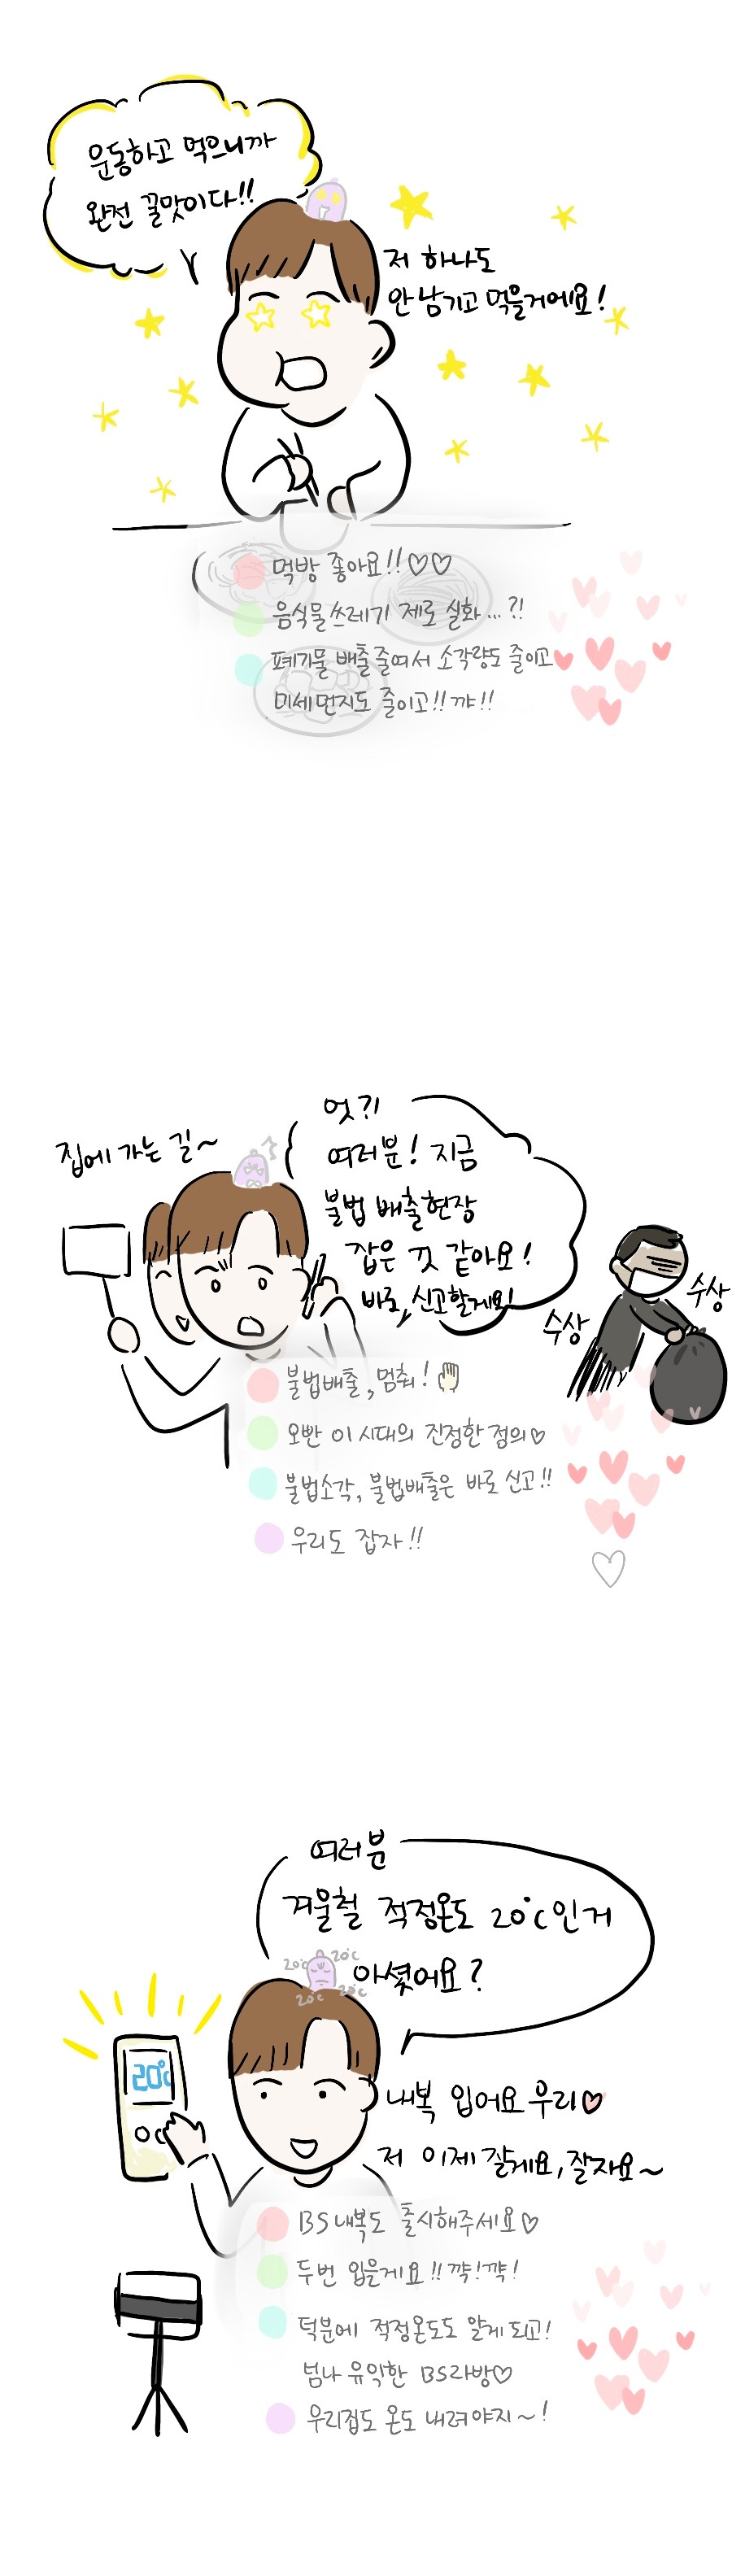 운동하고 먹으니까
완전 꿀맛이다!!
저 하나도
안 남기고 먹을거에요!
먹방 좋아요!!♡♡
음식물쓰레기 제로 실화...?!
폐기물 배출 줄여서 소각량도 줄이고
미세먼지도 줄이고!! 꺄!!
집에 가는 길~
엇?!
여러분! 지금
불법 배출현장
잡은 것 같아요!
바로, 신고할게요!
수상
수상
불법배출, 멈춰!
오빤 이 시대의 진정한 정의♡
불법소각, 불법배출은 바로 신고!!
우리도 잡자!!
여러분
겨울철 적정온도 20℃인거
아셨어요?
20℃ 20℃
20℃ 20℃
20℃
내복 입어요 우리♡
저 이제 잘게요, 잘자요~
BS내복도 출시해주세요♡
두번 입을게요!! 꺅!꺅!
덕분에 적정온도도 알게 되고!
넘나 유익한 BS라방♡
우리집도 온도 내려야지~!